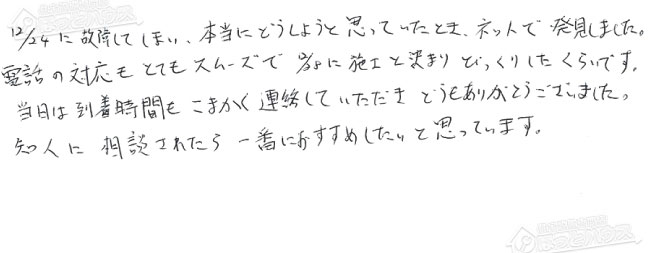 12/24に故障してしまい、本当にどうしようと思っていたとき、ネットで発見しました。
電話の対応もとてもスムーズで に施工と決まりびっくりしたくらいです。
当日は到着時間もこまかく連絡していただきどうもありがとうございました。
知人に相談されたら一番におすすめしたいと思っています。